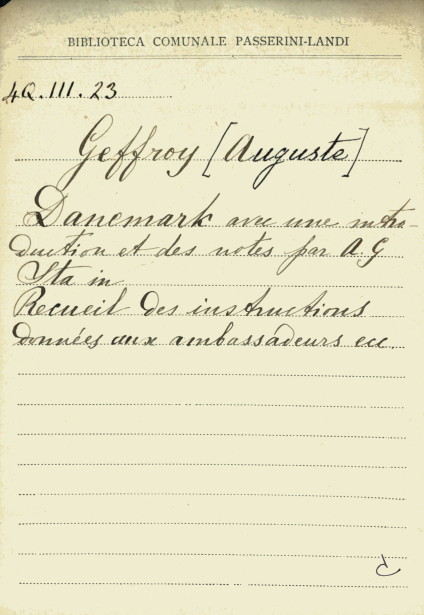 BIBLIOTECA COMUNALE PASSERINI-LANDI
4Q.III.23
Geffroy [Auguste]
Danemark avec une intro-
duction et des notes par A. G
Sta in
Recueil des instructions
données aux ambassadeurs ecc.